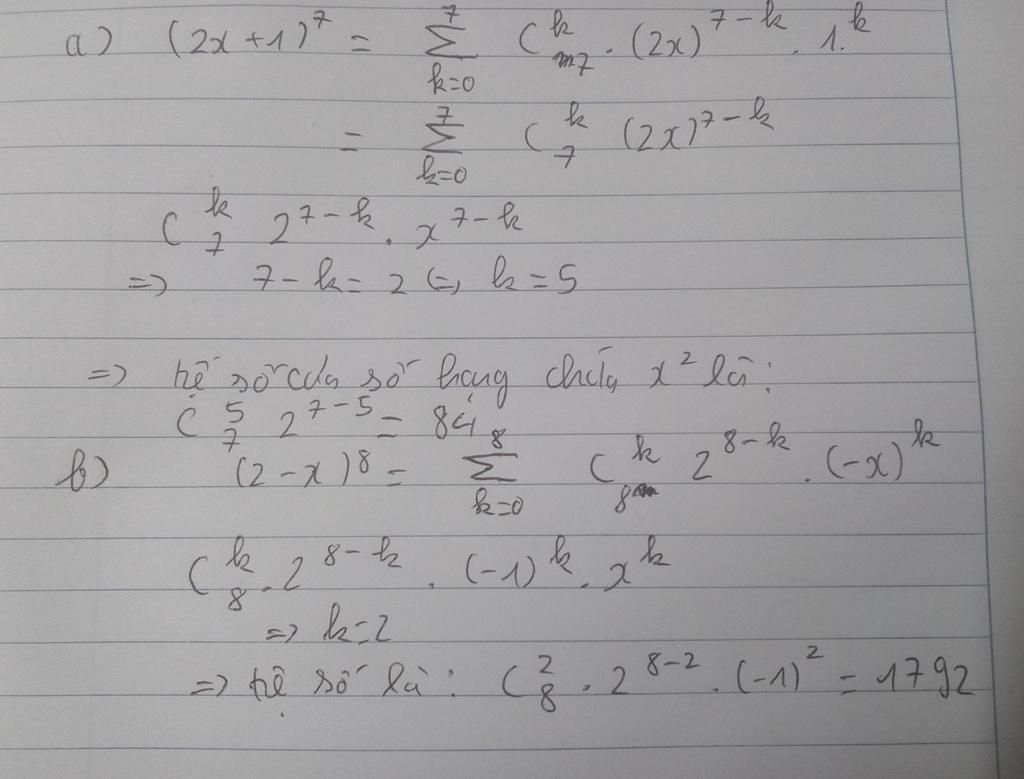 a) (2x+1)^7 = \sum_{k=0}^{7} C_7^k . (2x)^{7-k} . 1.^k
= \sum_{k=0}^{7} C_7^k (2x)^{7-k}
C_7^k 2^{7-k} . x^{7-k}
=> 7-k=2 <=> k=5
=> hệ số của số hạng chứa x^2 là:
C_7^5 2^{7-5} = 84
b) (2-x)^8 = \sum_{k=0}^{8} C_8^k 2^{8-k} . (-x)^k
C_8^k . 2^{8-k} . (-1)^k . x^k
=> k=2
=> hệ số là: C_8^2 . 2^{8-2} . (-1)^2 = 1792